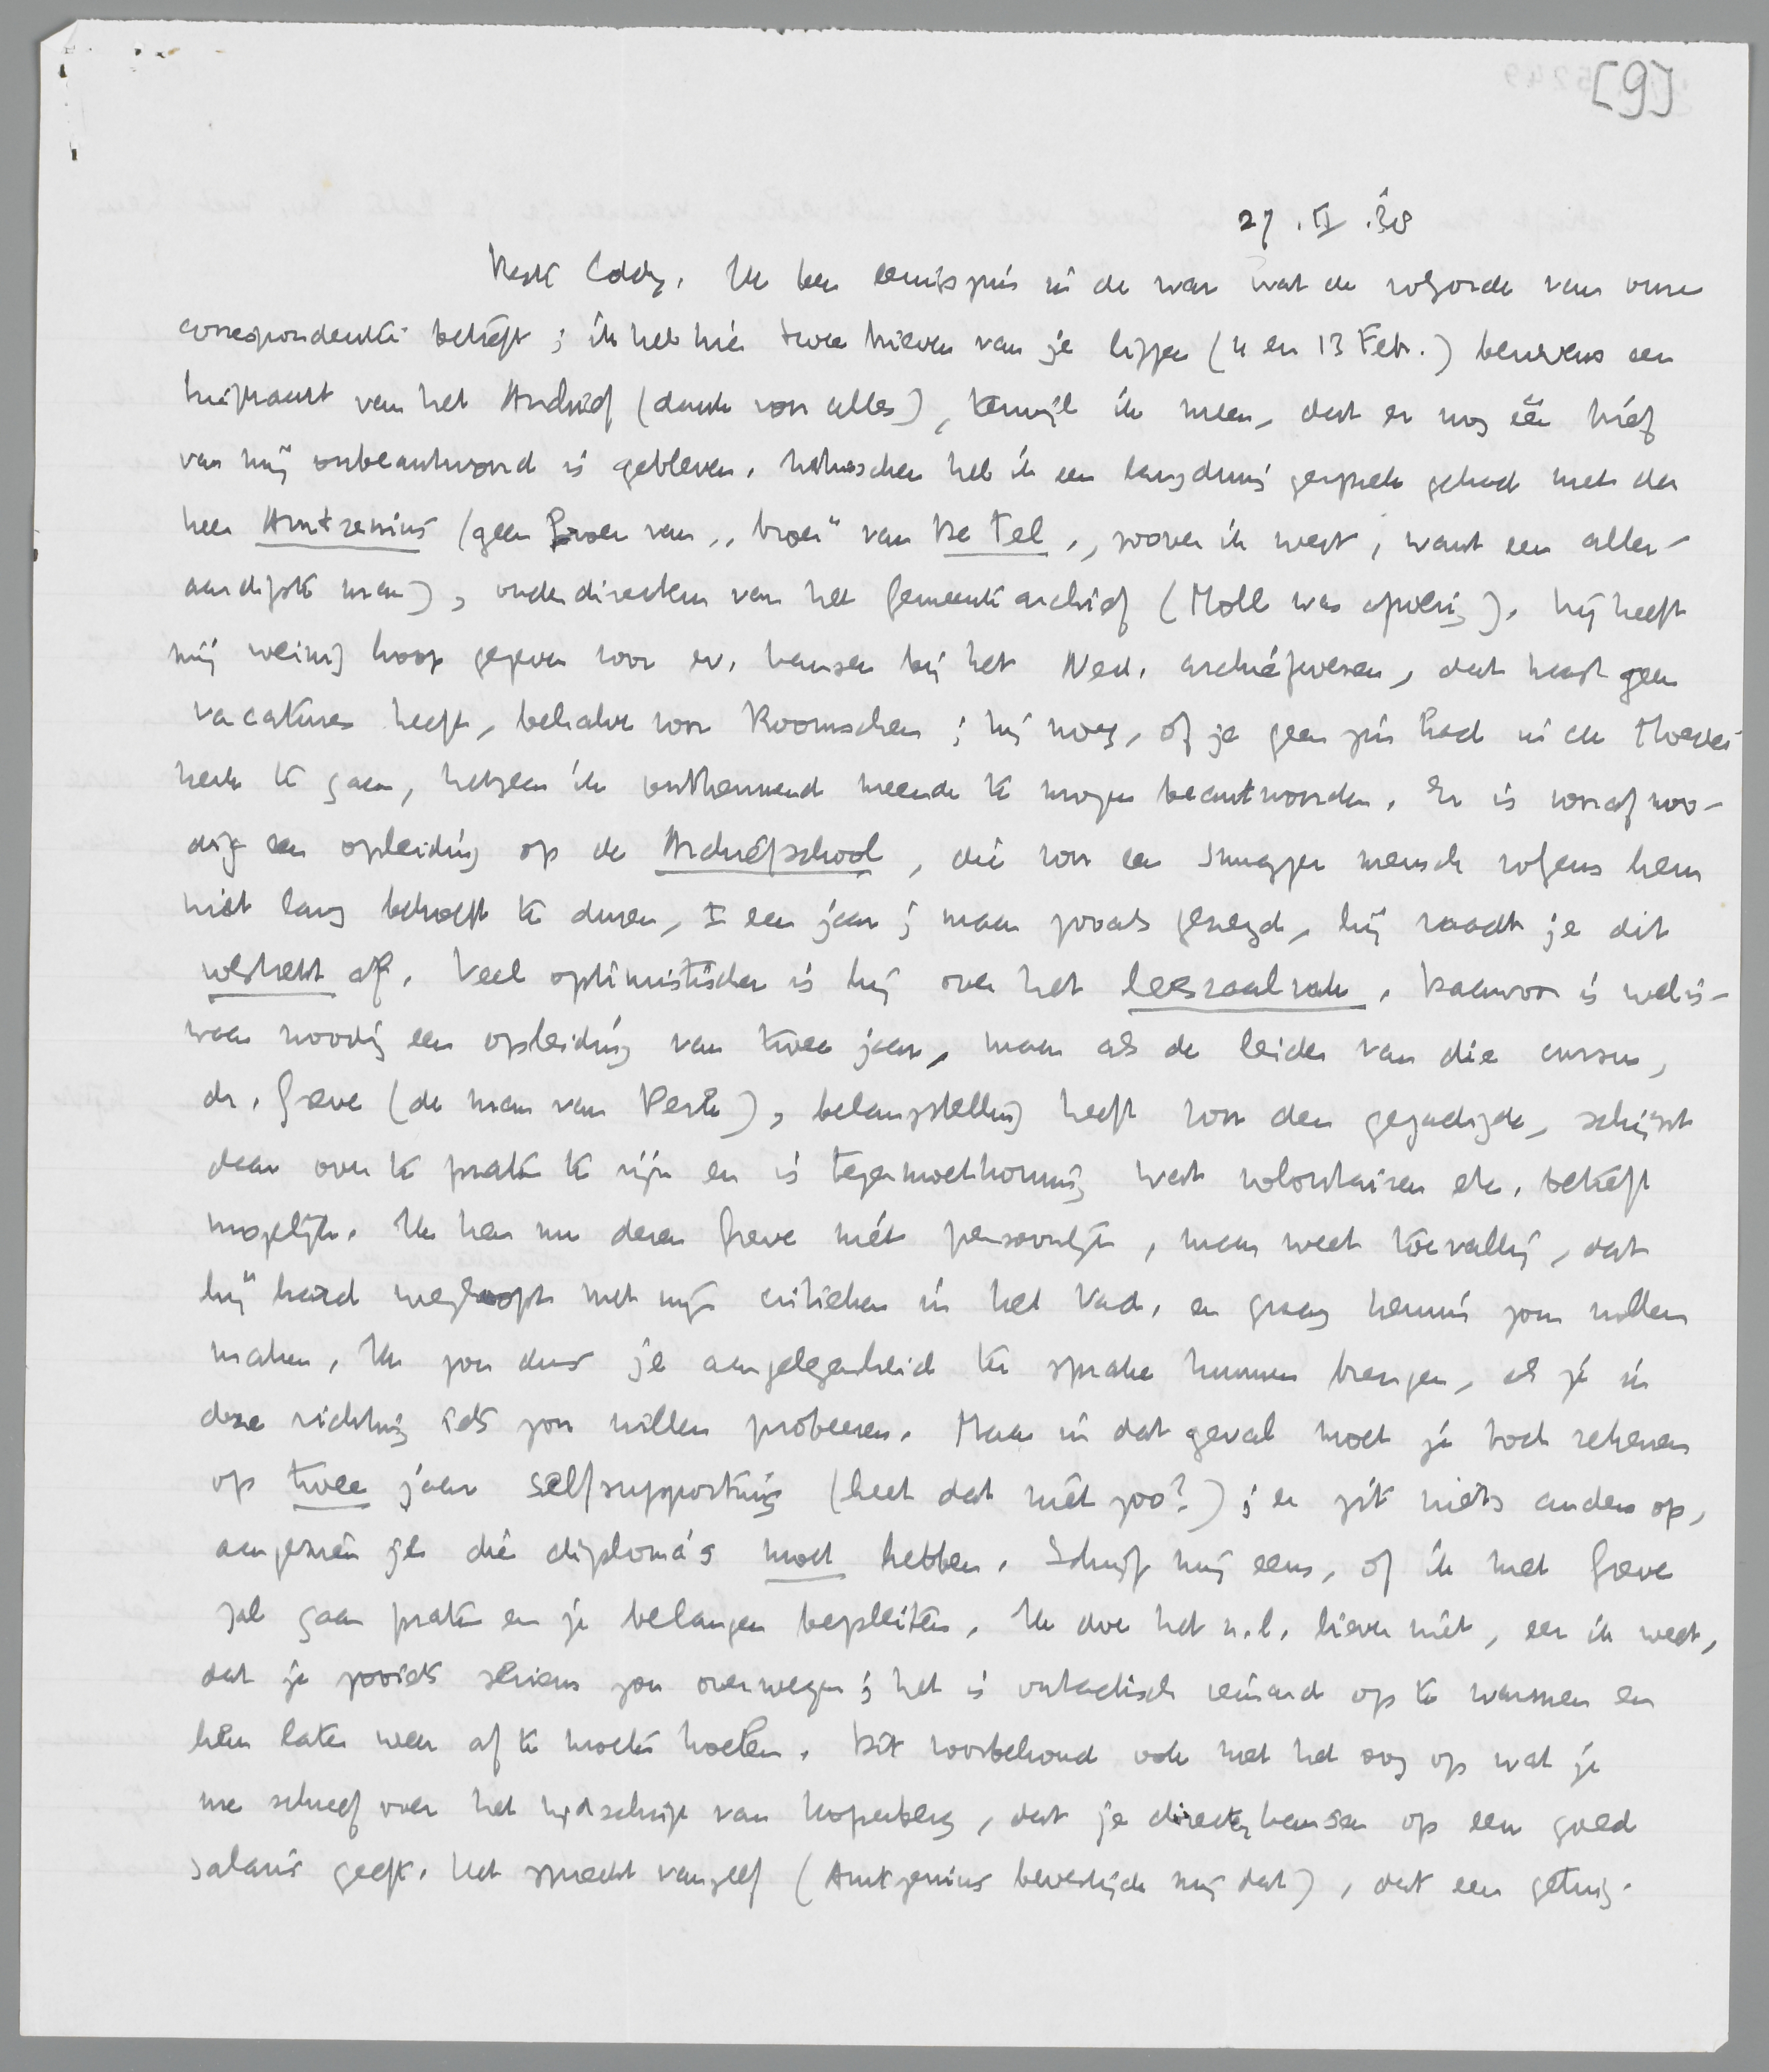 [9]
27.II.38
Beste Eddy, Ik ben eenigszins in de war wat de volgorde van onze
correspondentie betreft; ik heb hier twee brieven van je liggen (11 en 13 Febr.) benevens een
briefkaart van het Archief (dank voor alles), terwijl ik meen, dat er nog één brief
van mij onbeantwoord is gebleven. Intusschen heb ik een langdurig gesprek gehad met den
heer Arntzenius (geen broer van „broer” van De Tel., zoover ik weet, want een aller-
aardigste man), onderdirecteur van het Gemeentearchief (Moll was afwezig). Hij heeft
mij weinig hoop gegeven voor ev. kansen bij het Ned. archiefwezen, dat haast geen
vacatures heeft, behalve voor Roomschen; hij vroeg, of je geen zin had in de Moeder-
kerk te gaan, hetgeen ik ontkennend meende te mogen beantwoorden. Er is vooraf noo-
dig een opleiding op de Archiefschool, die voor een snugger mensch volgens hem
niet lang behoeft te duren, ± een jaar; maar zooals gezegd, hij raadt je dit
beslist af. Veel optimistischer is hij over het leeszaalvak. Daarvoor is welis-
waar noodig een opleiding van twee jaar, maar als de leider van die cursus,
dr. Greve (de man van Verka), belangstelling heeft voor den gegadigde, schijnt
daar over te praten te zijn en is tegemoetkoming wat volontairen etc. betreft
mogelijk. Ik ken nu dezen Greve niet persoonlijk, maar weet toevallig, dat
hij hard wegloopt met mijn critieken in het Vad. en graag kennis zou willen
maken. Ik zou dus je aangelegenheid ter sprake kunnen brengen, als je in
deze richting iets zou willen probeeren. Maar in dat geval moet je toch rekenen
op twee jaar selfsupporting (heet dat niet zoo?); er zit niets anders op,
aangezien je die diploma's moet hebben. Schrijf mij eens, of ik met Greve
zal gaan praten en je belangen bepleiten. Ik doe het n.l. liever niet, eer ik weet,
dat je zooiets serieus zou overwegen; het is ontactisch iemand op te warmen en
hem later weer af te moeten koelen. Dit voorbehoud ook met het oog op wat je
me schreef over het tijdschrift van Koperberg, dat je directer kansen op een goed
salaris geeft. Het spreekt vanzelf (Arntzenius bevestigde mij dat), dat een getuig-